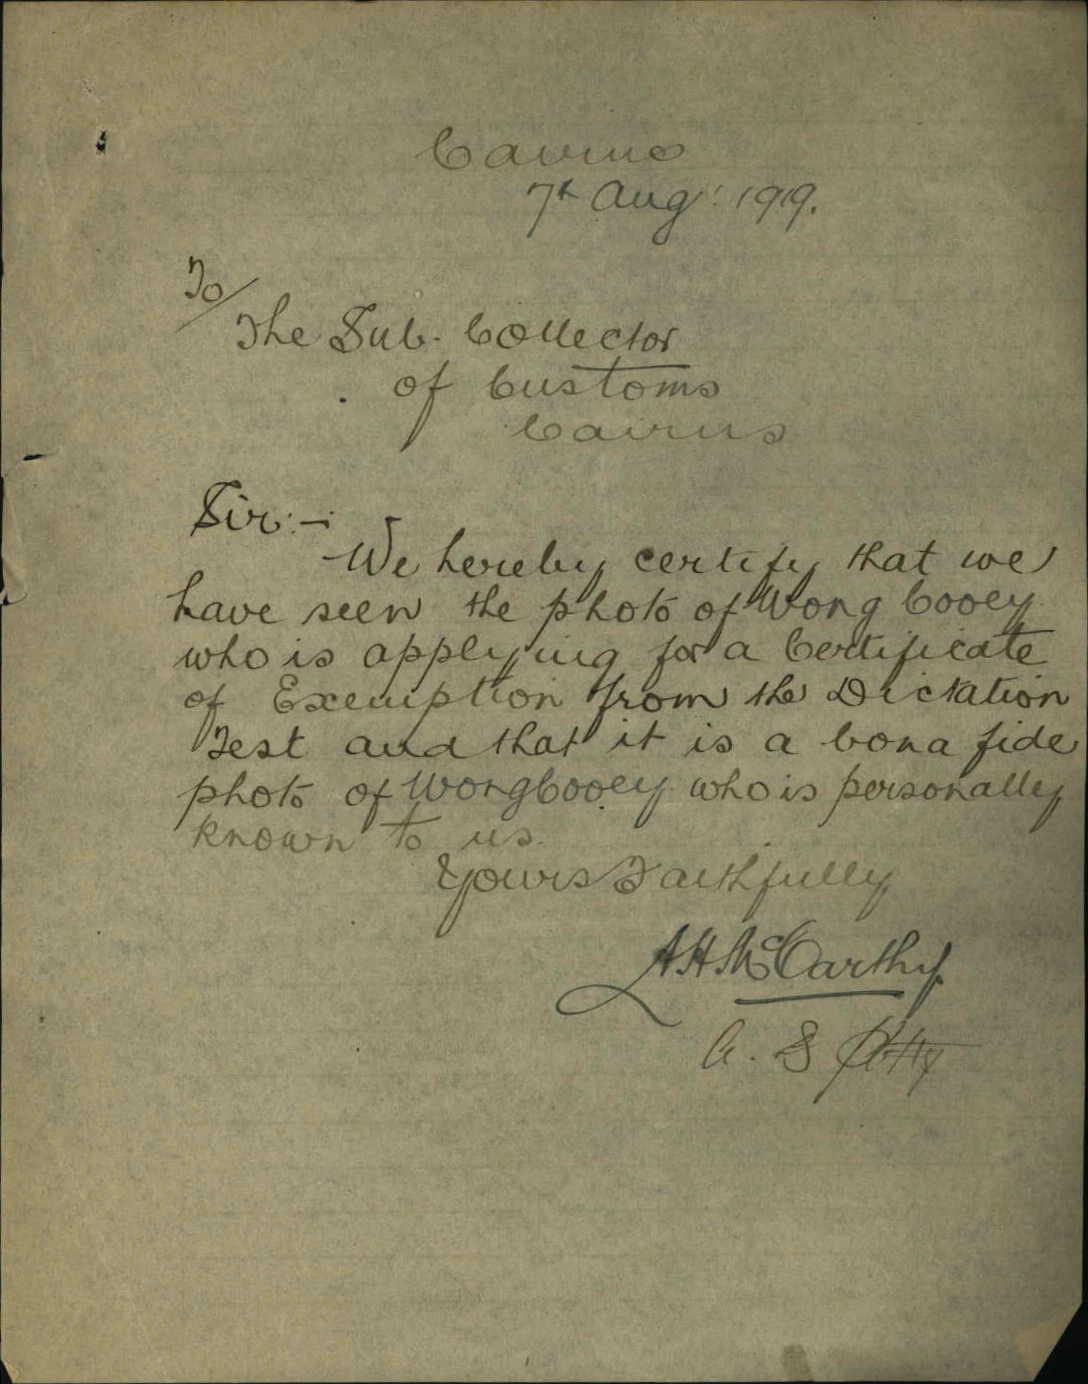 Cairns
7th Aug: 1919.
To/
The Sub. Collector
of Customs
Cairns
Sir:-
We hereby certify that we
have seen the photo of Wong Cooey
who is applying for a Certificate
of Exemption from the Dictation
Test and that it is a bona fide
photo of Wong Cooey who is personally
known to us.
Yours Faithfully
A H McCarthy